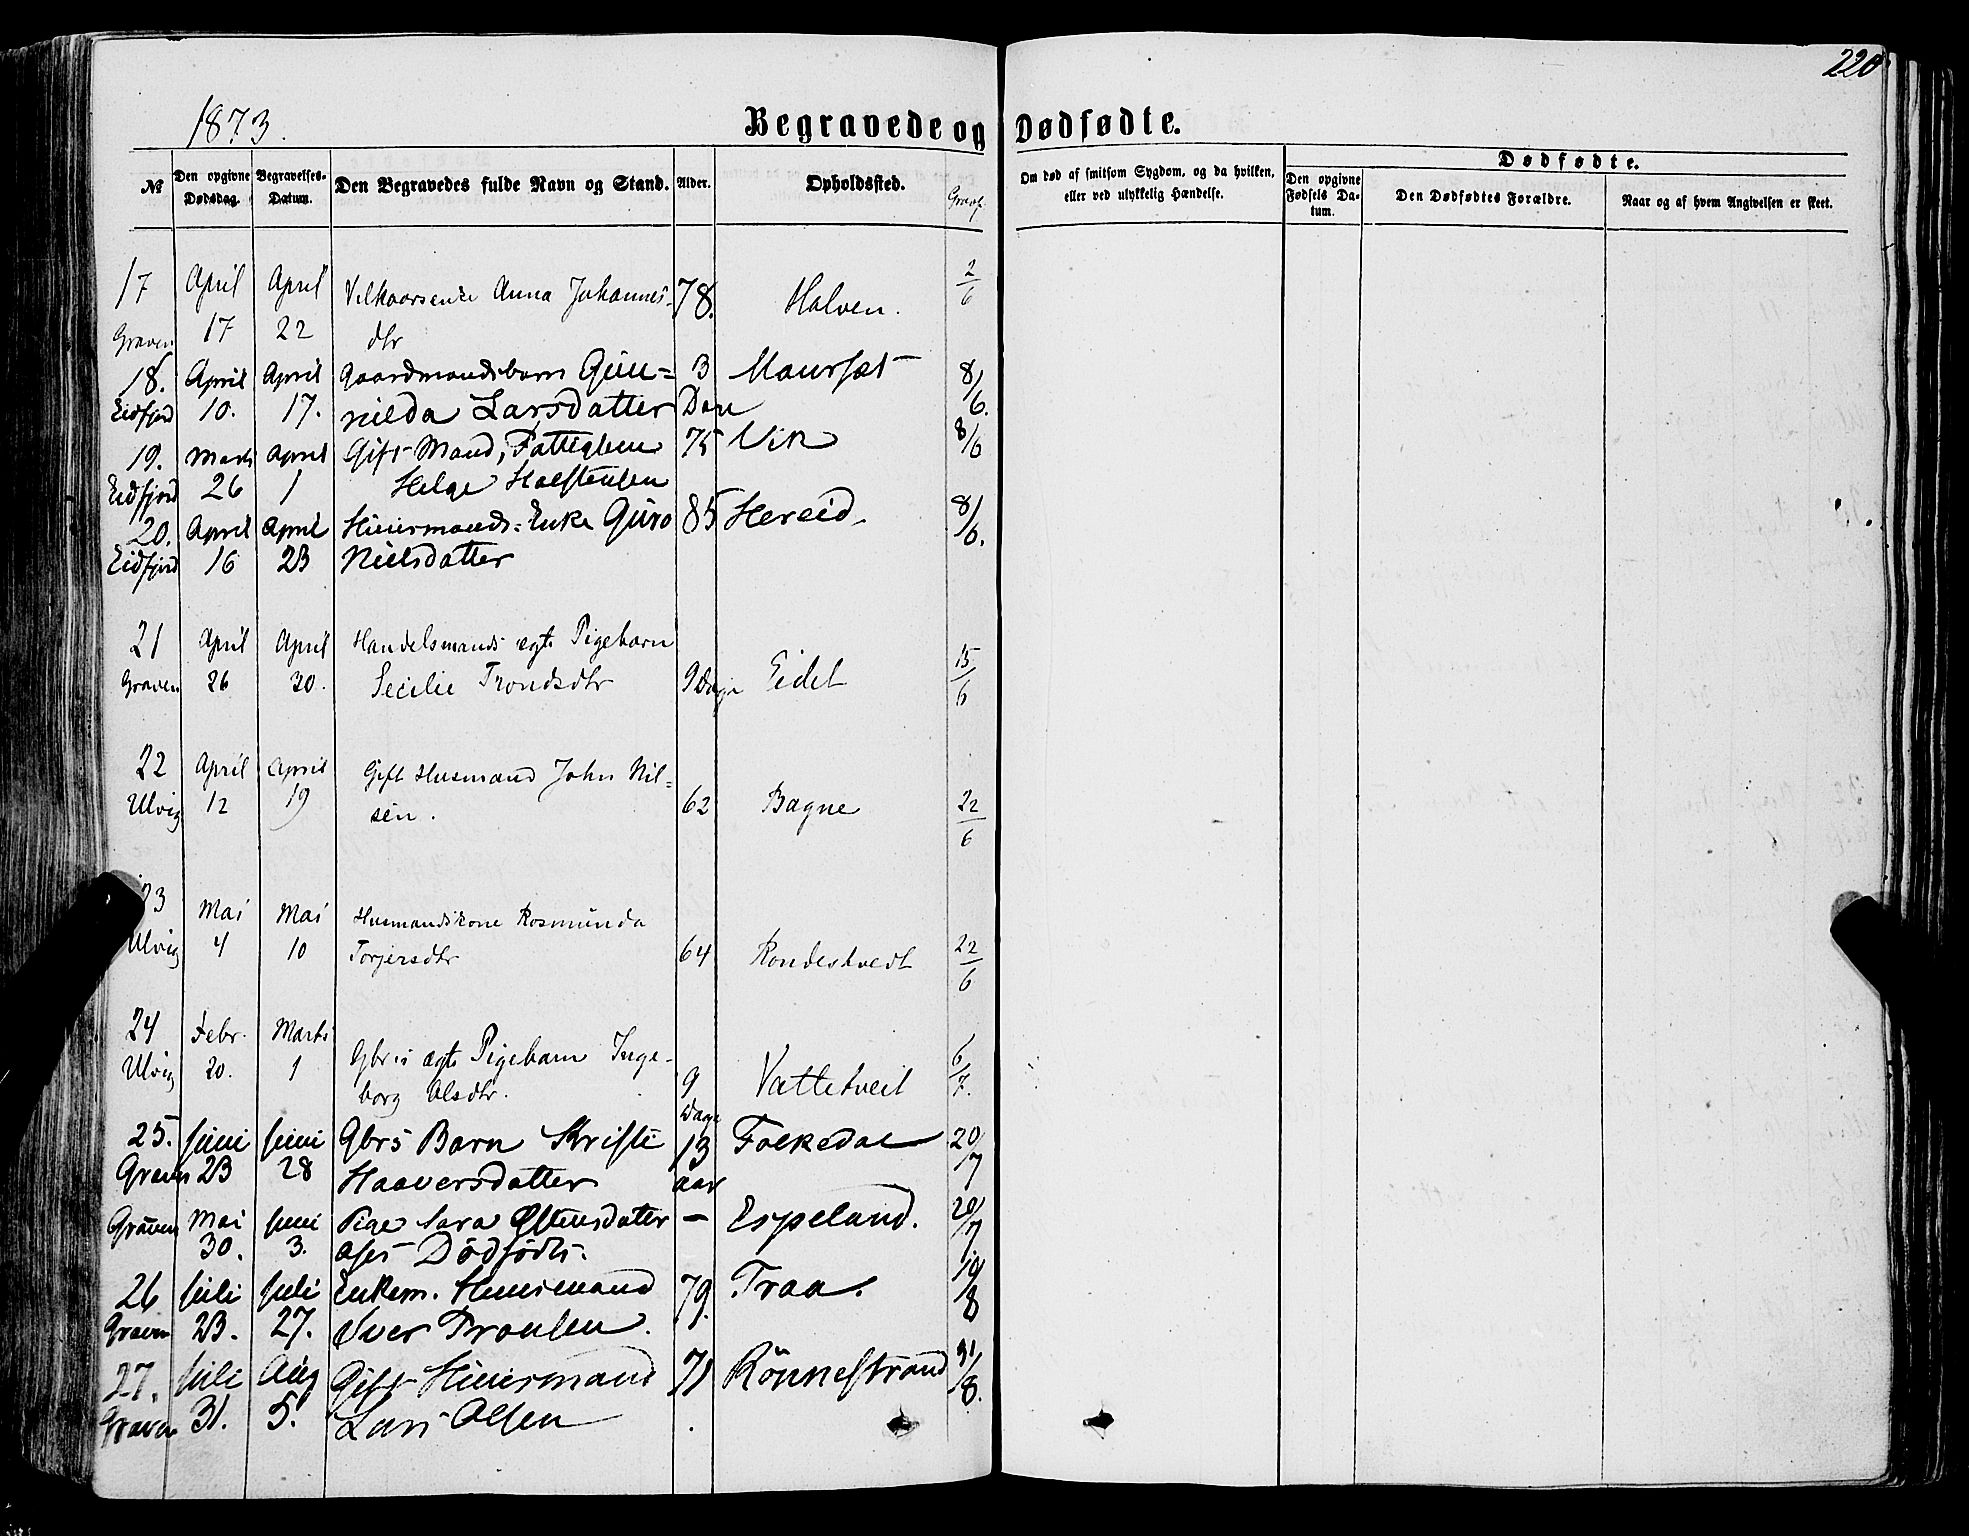 220
1873.
Begravede og Dødfødte.
№ Den opgivne Dødsdag. Begravelses-Datum. Den Begravedes fulde Navn og Stand. Alder. Opholdssted. Om død af smitsom Sygdom, og da hvilken, eller ved ulykkelig Hændelse. Dødfødte.
Den opgivne Fødsels Datum. Den Dødfødtes Forældre. Naar og af hvem Angivelsen er skeet.
17 April April Vilkaarsenke Anna Johannes- 78. Halven. 2/6
Graven 17 22 dtr
18. April April Gaardmandsbarn Gun= 3 Maursæt 8/6.
Eidfjord 10. 17. nilda Larsdatter Dage
19. Marts April Gift Mand, Fattiglem 75 Vik 8/6
Eidfjord 26 1 Helge Halstensen
20. April April Huusmands=Enke Guro 85 Hereid. 8/6.
Eidfjord 16 23 Nielsdatter
21 April April Handelsmands ægte Pigebarn
Graven 26 30. Secilie Trondsdtr 9 Dage Eidet 15/6
22 April April Gift Husmand John Nil=
Ulvig 12 19 sen. 62 Bagne 22/6
23 Mai Mai Husmandskone Rosmunda
Ulvig 4 10 Torjersdtr 64 Rondestvedt 22/6
24 Febr. Marts
Ulvig 20. 1 Gbr:s ægte Pigebarn Inge-
borg Olsdtr. 9 Dage Vattetveit 6/7.
25. Juni Juni Gbrs Barn Kristi 13 Folkedal 20/7
Graven 23 28 Haaversdatter aar
Graven Mai Juni Pige Sara Østensdatter – Espeland. 20/7
30. 3. Dødfødt.
26 Juli Juli Enkem. Huusmand 79. Traa. 10/8
Graven 23. 27. Iver
27. Juli Aug Gift Huusmand 71 Rönnestrand 31/8.
Graven 31. 5. Lars Olsen